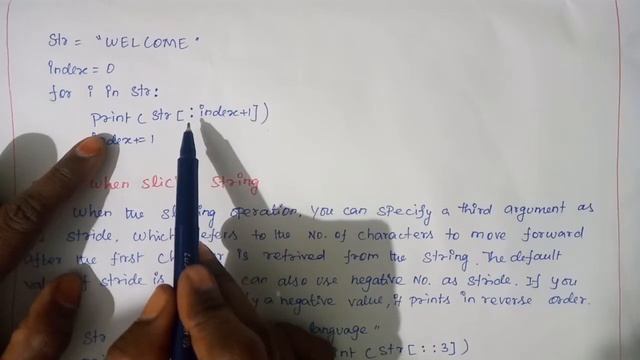 Str = "WELCOME"
index = 0
for i in str:
print ( str [ : index+1] )
index+= 1
when slic string
when the sl ing operation, you can specify a third argument as
stride, which efers to the No. of characters to move forward
after the first ch r is retrived from the string. The default
val of stride is can also use negative No. as stride. If you
y a negative value, it prints in reverse order.
Str language"
int ( str [ : : 3] )